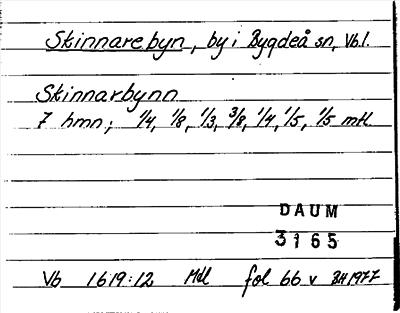 Skinnarebyn, by i Bygdeå sn, Vb.l.
Skinnarbynn
7 hmn; 1/4, 1/8, 1/3, 3/8, 1/4, 1/5, 1/5 mtl.
DAUM
3165
Vb 1619:12 Mdl fol 66 v BH1977